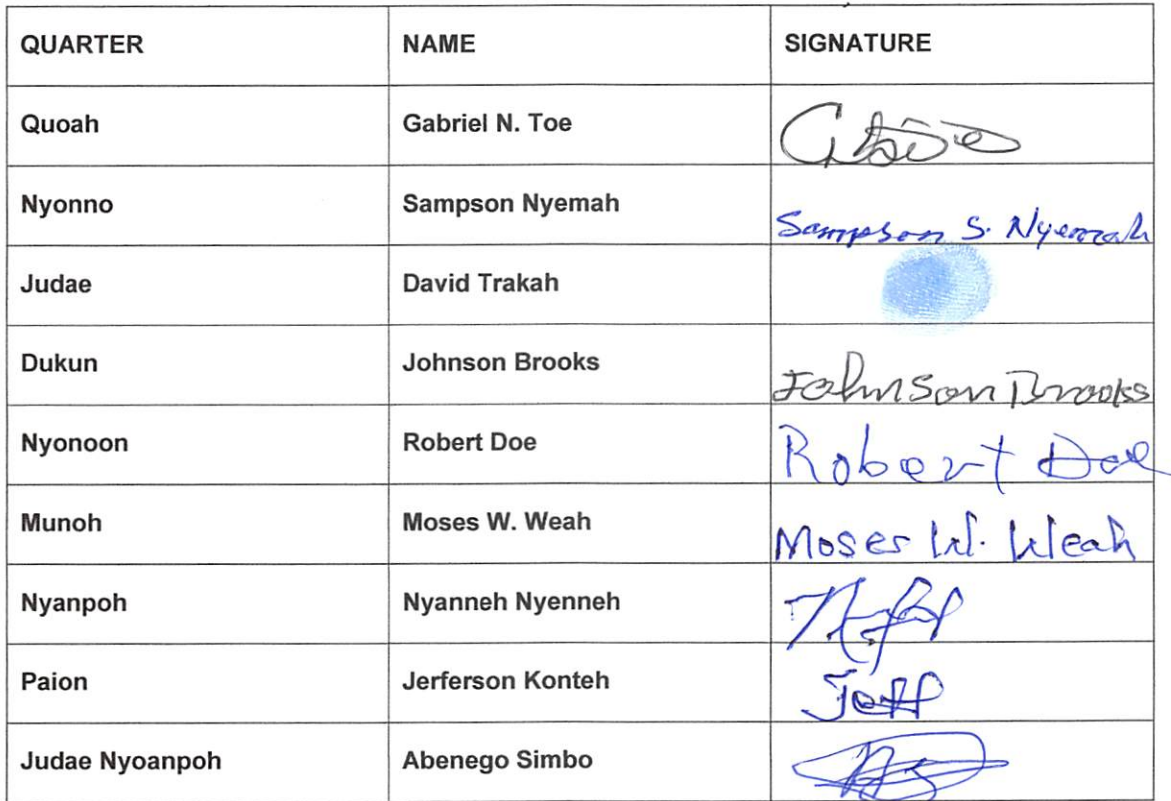 QUARTER NAME SIGNATURE
Quoah Gabriel N. Toe
Nyonno Sampson Nyemah Sampson S. Nyemah
Judae David Trakah
Dukun Johnson Brooks Johnson Brooks
Nyonoon Robert Doe Robert Doe
Munoh Moses W. Weah Moses W. Weah
Nyanpoh Nyanneh Nyenneh
Paion Jerferson Konteh Jeff
Judae Nyoanpoh Abenego Simbo